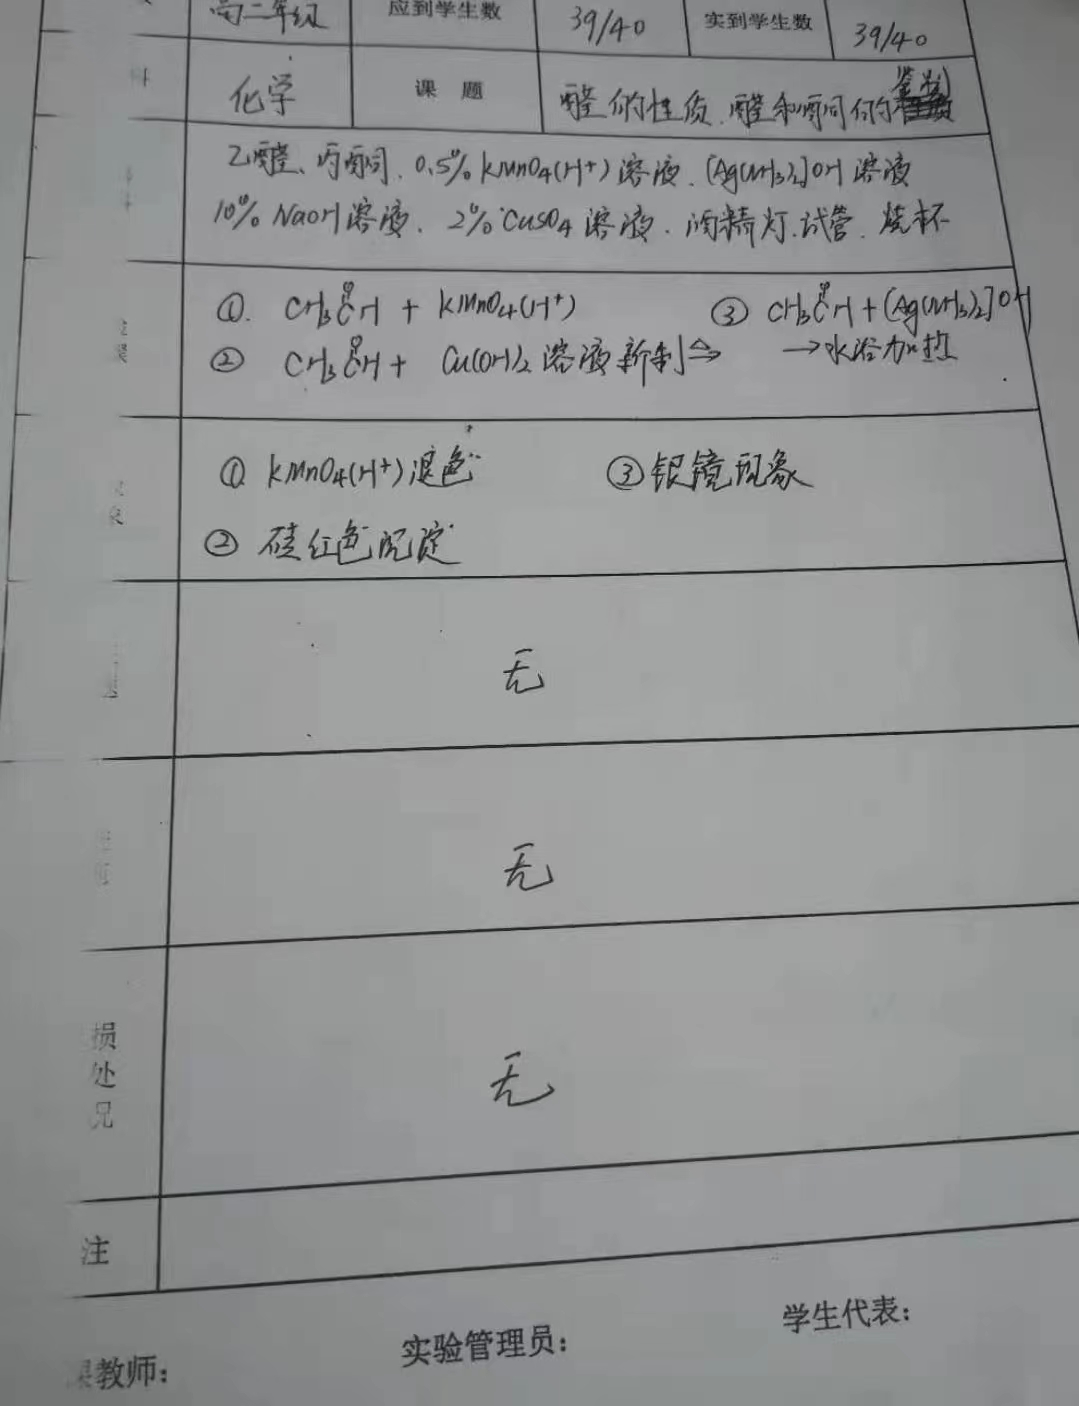 高二年级 应到学生数 39/40 实到学生数 39/40
化学 课题 醛的性质、醛和酮的鉴别
乙醛、丙酮、0.5% KMnO4(H+)溶液、[Ag(NH3)2]OH溶液
10% NaOH溶液、2% CuSO4溶液、酒精灯、试管、烧杯
① CH3CH + KMnO4(H+) ③ CH3CH + [Ag(NH3)2]OH
② CH3CH + Cu(OH)2 溶液新制 △→ →水浴加热
① KMnO4(H+)退色 ③银镜现象
② 硅红色沉淀
无
无
损
处
无
注
教师: 实验管理员: 学生代表: